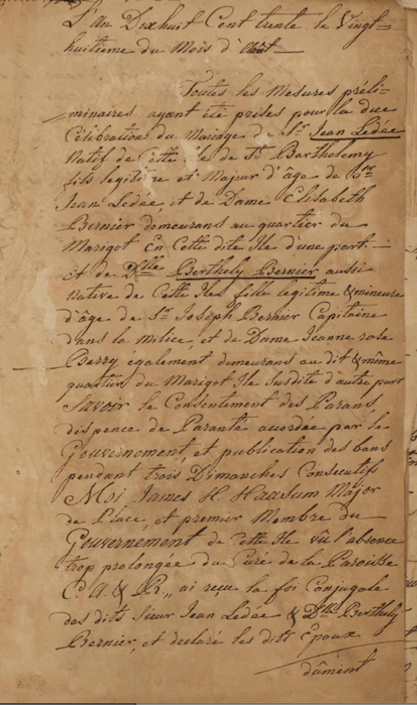 L'an Dix huit Cent trente le Vingt-
huitième du Mois d'Août
Toutes les Mesures préli-
minaires ayant été prises pour la due
Célébration du Mariage de Sr. Jean Ledée
Natif de Cette île de St. Barthelemy
fils legitime et Majeur d'âge de
Jean Ledée, et de Dame Elisabeth
Bernier demeurans au quartier du
Marigot En Cette dite Ile d'une part
Et de Dlle Berthely Bernier aussi
Native de Cette Ile fille legitime & mineure
d'âge de Sr. Joseph Bernier Capitaine
dans la Milice, et de Dame Jeanne rose
Berry également demeurans au dit & même
quartier du Marigot Ile Susdite d'autre part
Savoir le Consentement des Parans,
dispence de Parante accordée par le
Gouvernement, et publication des bans
pendant trois Dimanches Consecutifs
Moi James H Haasum Major
de Place, et premier Membre du
Gouvernement de Cette Ile vû l'absence
trop prolongée du Curé de la Paroisse
C. A. & R., ai reçu la foi Conjugale
des dits Sieur Jean Ledée & Dlle Berthely
Bernier, et declaré les dits Epoux
dûment